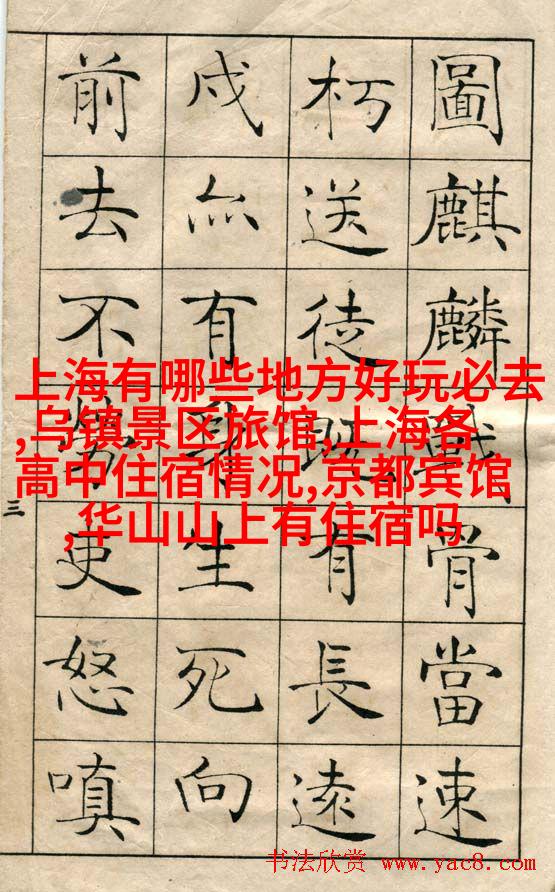 圖麒麟戰骨當速
朽送徒既有長遠
戍亦有身生死向
前去不勞吏怒嗔
三
上海有哪些地方好玩必去
,乌镇景区旅馆,上海各
高中住宿情况,京都宾馆
,华山山上有住宿吗
书法欣赏 www.yac8.com